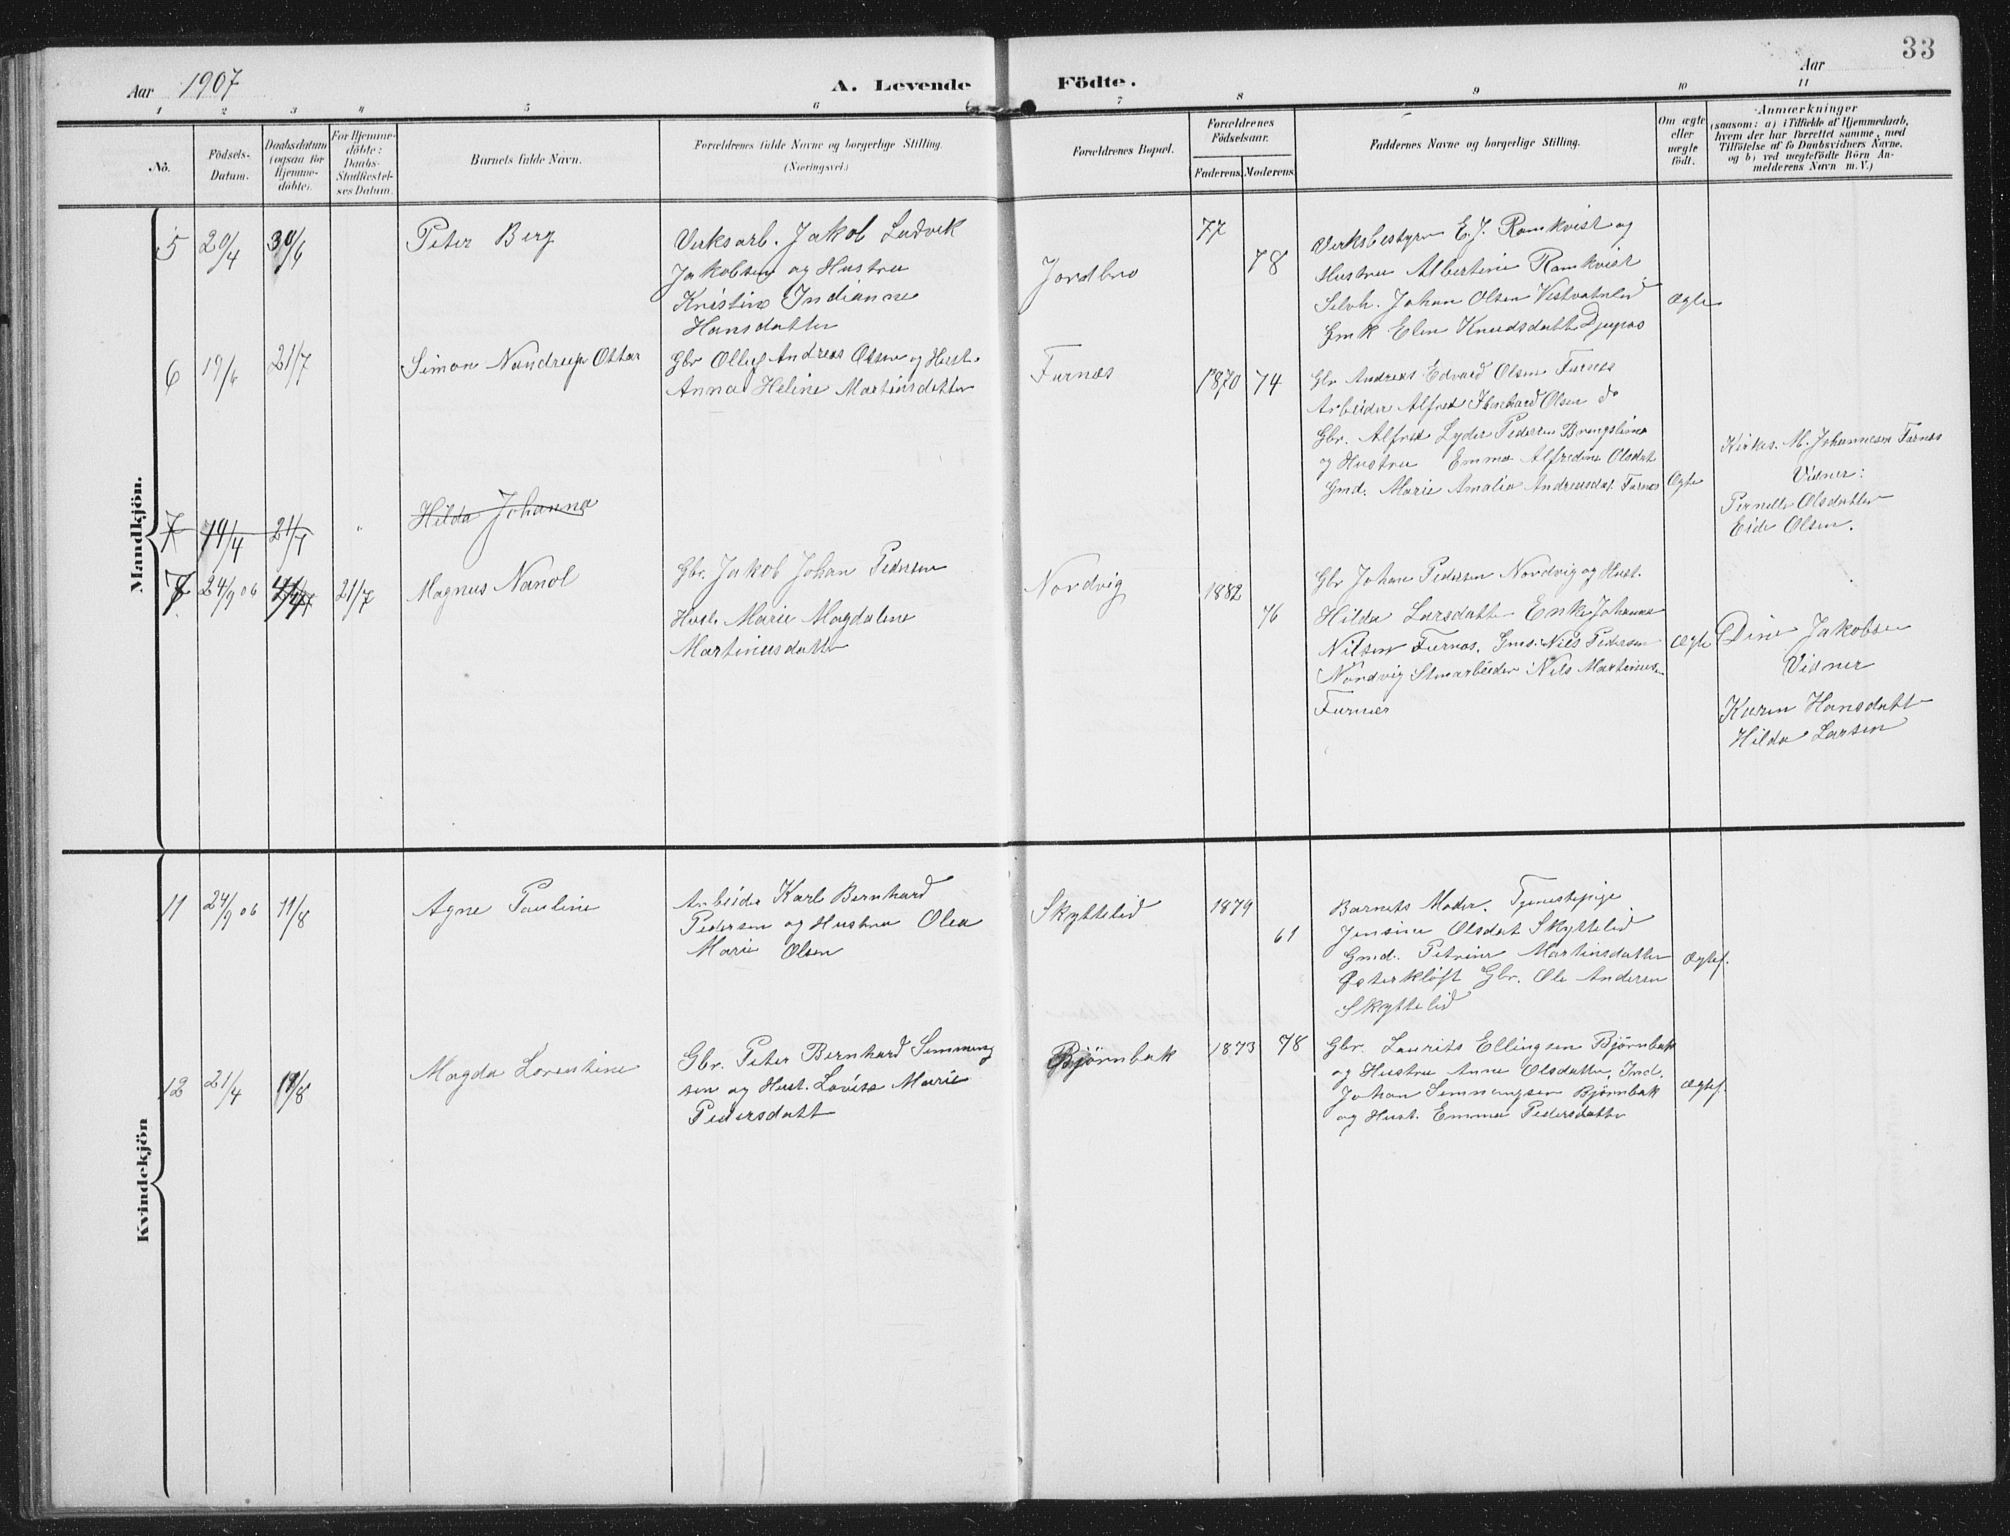 33
Aar 1907
A. Levende Födte.
Aar
1 2 3 4 5 6 7 8 9 10 11
No.
Födsels-
Datum.
Daabsdatum
(ogsaa for
Hjemme-
döbte).
For Hjemme-
döbte:
Daabs-
Stadfæstel-
ses Datum.
Barnets fulde Navn.
Forældrenes fulde Navne og borgerlige Stilling.
(Næringsvei.)
Forældrenes Bopæl.
Forældrenes
Födselsaar.
Faderens. Moderens.
Faddernes Navne og borgerlige Stilling.
Om ægte
eller
uægte
födt.
Anmærkninger
(saasom: a) i Tilfælde af Hjemmedaab,
hvem der har forrettet samme, med
Tilföielse af to Daabsvidners Navne,
og b) ved uægtefödte Börn An-
melderens Navn m. V.)
Mandkjön.
5 20/4 30/6 Peter Berg
Verksarb. Jakob Ludvik
Jakobsen og Hustru
Kristine Indianne
Hansdatter
Jordbro
77 78
Verksbestyrer E. J. Ramkvist og
Hustru Albertine Ramkvist
Selvh. Johan Olsen Vestvatnlid
Gmk Elen Knudsdatt Djupos
Ægte
6 19/6 21/7 Simon Nandrup Ottar
Gbr Olluf Andreas Olsen og Hust.
Anna Heline Martinsdatter
Furnæs
1870 74
Gbr Andreas Edvard Olsen Furnes
Arbeider Alfred Ebenhard Olsen do
Gbr. Alfred Lyder Pedersen Brengslime
og Hustru Emma Alfredine Olsdat
Gmd. Marie Amalia Andreasdat. Furnes
Ægte
Kirkes. M. Johannesen Furnes
Vidner:
Pernelle Olsdatter
Eide Olsen.
7 19/4 21/7 " Hilda Johanna
7 24/9 06 21/7 Magnus Nanol
Gbr. Jakob Johan Pedersen
Hust. Marie Magdalene
Martinusdatter
Nordvig
1882 76
Gbr Johan Pedersen Nordvig og Hust.
Hilda Larsdatt Enke Johanna
Nilsen Furnes. Gmd. Nils Pedersen
Nordvig Stenarbeider Nils Martinus
Furnes
Ægte
Dine Jakobsen
Vidner
Karen Hansdatt
Hilda Larsen
Kvindekjön
11 24/9 06 11/8 Agne Pauline
Arbeider Karl Bernhard
Pedersen og Hustru Olea
Marie Olsen
Skyttelid
1879 61
Barnets Moder. Tjenestepige
Jensine Olsdat Skyttelid
Gmd. Petrine Martinsdatter
Østerkløft Gbr. Ole Andersen
Skyttelid
Ægtef.
12 21/4 11/8 Magda Lorentine
Gbr. Peter Bernhard Semming
sen og Hust. Lovise Marie
Pedersdatt
Bjørnbak
1873 78
Gbr. Laurits Ellingsen Bjørnbak
og Hustru Anne Olsdatter, Ind.
Johan Semmingsen Bjørnbak
og Hust. Emma Pedersdatter
Ægtef.